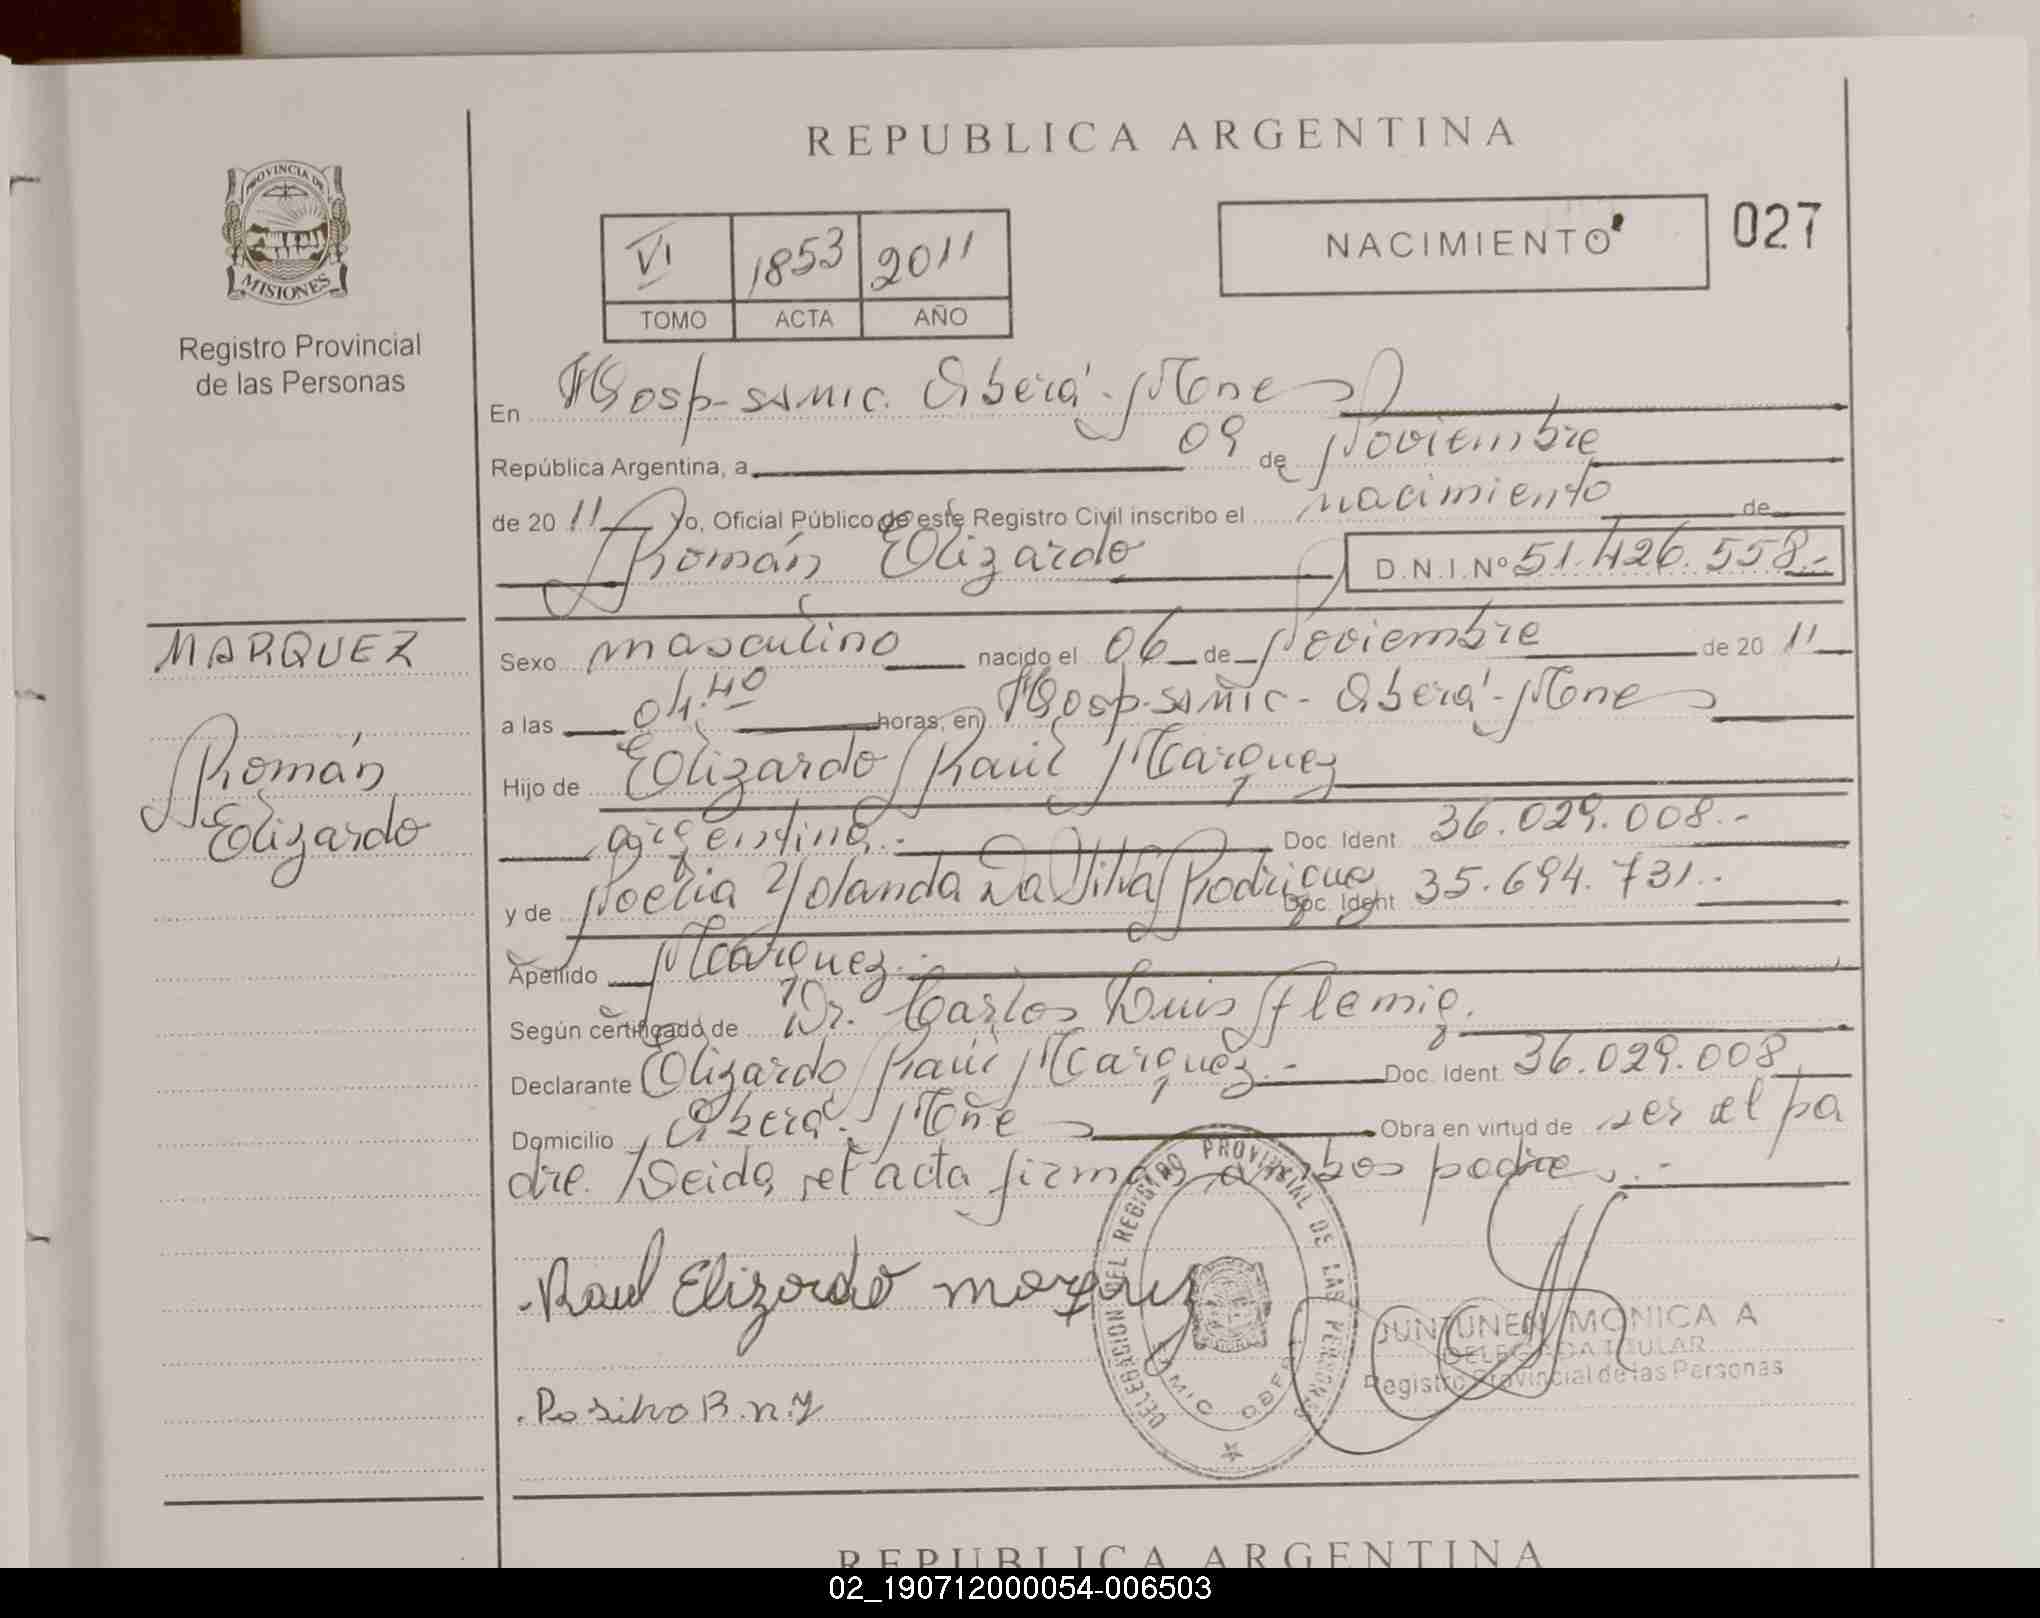 REPUBLICA ARGENTINA
PROVINCIA DE
MISIONES
Registro Provincial
de las Personas
VI 1853 2011
TOMO ACTA AÑO
NACIMIENTO
027
En Hosp-samic. Oberá-Mnes
República Argentina, a 09 de Noviembre
de 2011 Yo, Oficial Público de este Registro Civil inscribo el nacimiento de
Román Elizardo D.N.I.Nº 51.426.558.-
MARQUEZ
Román
Elizardo
Sexo masculino nacido el 06 de Noviembre de 2011
a las 04.40 horas, en Hosp-samic- Oberá-Mnes
Hijo de Elizardo Raúl Marquez
argentina.- Doc. Ident. 36.029.008.-
y de Noelia Yolanda Da Silva Rodriguez Doc. Ident. 35.694.731.-
Apellido Marquez.-
Según certificado de Dr. Carlos Luis Flemig.
Declarante Elizardo Raúl Marquez.- Doc. Ident. 36.029.008
Domicilio Oberá- Mnes Obra en virtud de ser el pa
dre. Leida el acta firman ambos padres.-
Raul Elizardo Marquez
DELEGACION DEL REGISTRO PROVINCIAL DE LAS PERSONAS
JUNTUNEN MONICA A
DELEGADA TITULAR
Registro Provincial de las Personas
. Positivo R.n.Y
REPUBLICA ARGENTINA
02_190712000054-006503